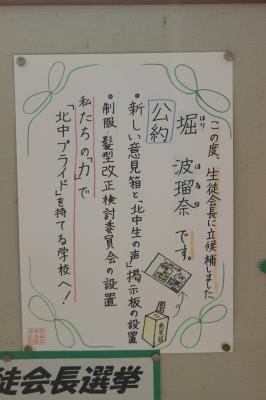 この度、生徒会長に立候補しました、
堀 波瑠奈です。
ほり はるな
公約
・新しい意見箱と「北中生の声」掲示板の設置
・制服・髪型改正検討委員会の設置
私たちの「力」で
「北中プライド」を持てる学校へ!
意見箱
徒会長選挙